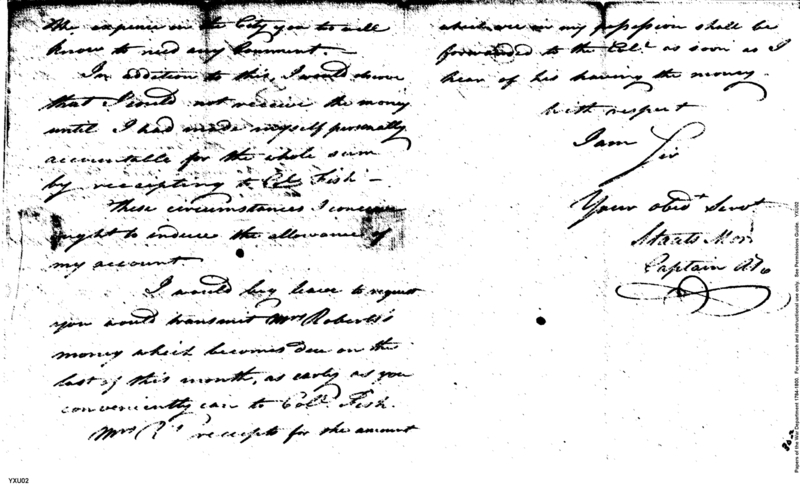 the expence in the City you to well
know to need any Comment. —
In addition to this, I would observe
that I could not receive the money
until I had made myself personally
accountable for the whole sum
by receipting to Col. Fish —
These circumstances I conceive
ought to induce the allowance of
my account
I would beg leave to request
you would transmit Mrs Roberts's
money which becomes due on the
last of this month, as early as you
conveniently can to Col. Fish.
Mrs R's receipts for the amount
which are in my possession shall be
forwarded to the Col. as soon as I
hear of his having the money.
with respect
I am Sir
Your obedt Servt
Staats Morris
Captain
YXU02
Papers of the War Department 1784-1800. For research and instructional use only. See Permissions Guide. YXU02